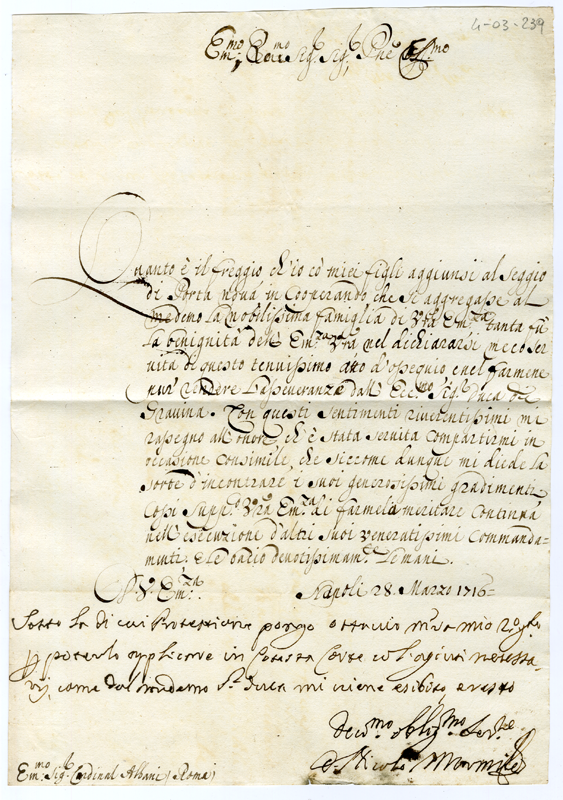 4-03-239
Em.mo Sig.r Sig.r
Quanto è il freggio ch'io cò miei figli aggiunsi al seggio
di Porta nova in Cooperando che si aggregasse al
medemo la nobilissima famiglia di V'ra Em.za tanta fù
la benignità dell' Em.za V'ra nel dichiararsi meco ser
vita di questo tenuissimo atto d'ossequio e nel farmene
pur' rendere l'asseveranza dall' Ecc.mo Sig.r Duca di
Gravina. Con questi sentimenti riverentissimi mi
rassegno all' onore, ch'è stata servita compartirmi in
occasione consimile, che siccome dunque mi diede la
sorte d'incontrare i suoi generosissimi gradimenti
Così supp.co V'ra Em.za di farmela meritare Continua
nell' esecuzione d'altri suoi veneratissimi Commanda-
menti. E le bacio devotissimam.te le mani.
Di V. Em.za Napoli 28. Marzo 1716=
Sotto la di cui Protettione porgo mio
poterlo applicare in Cotesta Corte
come dal medemo S.r Duca mi viene esibito e resto
Dev.mo obblig.mo Ser.re
Nicolò Mormile
Em.mo Sig.r Cardinal Albani (Roma)